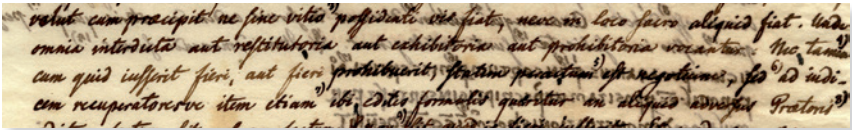 velut cum præcipit ne sine vitio possidenti vis fiat, neve in loco sacro aliquid fiat. Unde
omnia interdicta aut restitutoria aut exhibitoria aut prohibitoria vocantur. Nec tamen
cum quid iusserit fieri, aut fieri prohibuerit, statim peractum 5) est negotium, sed 6) ad iudi-
cem recuperatoresve itur etiam 7) ibi, editis formulis quæritur an aliquid adversus Prætoris